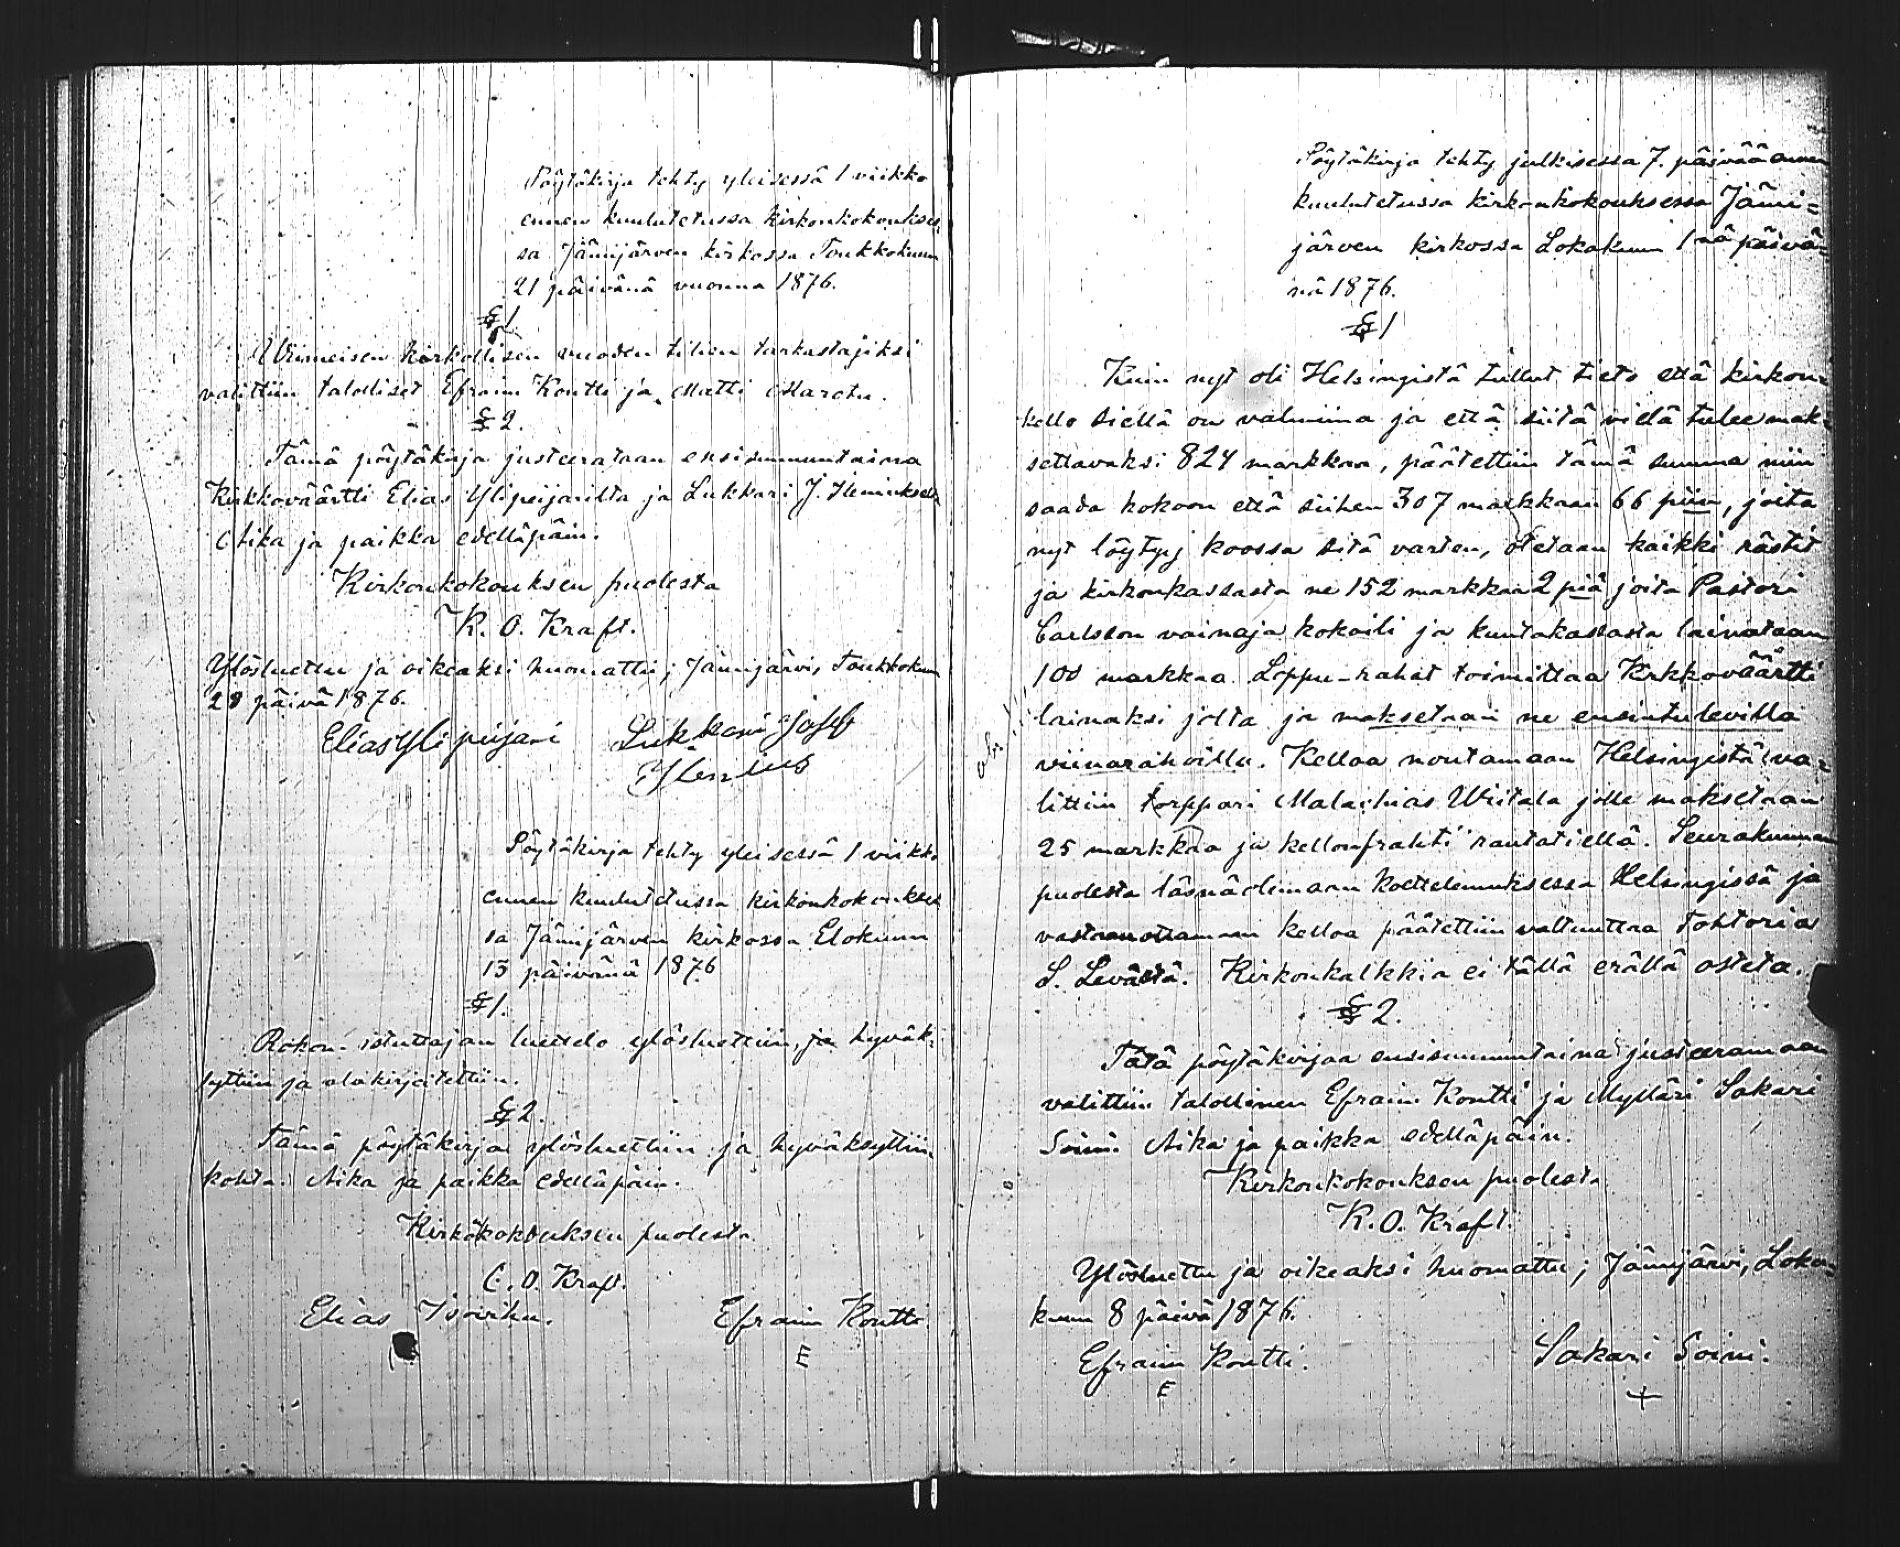 Pöytäkirja tehty yleisessä 1 viikko
ennen kuulutetussa kirkonkokoukses,
sa Jämijärven kirkossa Toukokuun
21 päivänä vuonna 1876.
§ 1
Wiimeisen kirkollisen vuoden tilien tarkastajiksi
valittiin talolliset Efraim Kontti ja Matti
§ 2.
Tämä pöytäkirja justeerataan ensisunnuntaina
Kirkkoväärtti Elias Ylipeijarilta ja Lukkari J.
Aika ja paikka edelläpäin.
Kirkonkokouksen puolesta
K. O. Kraft.
Ylösluettu ja oikeaksi huomattu; Jämijärvi, Toukkokuun
28 päivä 1876.
Elias Yli peijari Lukkari Josef
Pöytäkirja tehty yleisessä 1 viikko
ennen kuulutetussa kirkonkokoukses
sa Jämijärven kirkossa Elokuun
15 päivänä 1876
§ 1.
Rokon-istuttajan luettelo ylösluettiin, ja hyväk-
syttiin ja alakirjoitettiin.
§ 2.
Tämä pöytäkirja ylösluettiin ja hyväksyttiin
kohta. Aika ja paikka edelläpäin.
Kirkokokouksen puolesta
C. O. Kraft.
Elias Isovihu. Efraim Kontti.
E
Pöytäkirja tehty julkisessa 7. päivää ennen
kuulutetussa kirkonkokouksessa Jämi=
järven kirkossa Lokakuun 1nä päivä=
nä 1876.
§ 1
Kuin nyt oli Helsingistä tullut tieto että kirkon=
kello siellä on valmiina ja että siitä vielä tulee mak=
settavaksi 824 markkaa, päätettiin tämä summa niin
saada kokoon että siihen 307 markkaan 66 piin, joita
nyt löytyy koossa sitä varten, otetaan kaikki rästit
ja kirkonkassasta ne 152 markkaa 2 piä joita Pastori
Carlsson vainaja kokoili ja kuntakassasta lainataan
100 markkaa. Loppu-rahat toimittaa Kirkkoväärtti
lainaksi jolta ja maksetaan ne ensintulevilla
viinarahoilla. Kelloa noutamaan Helsingistä va=
littiin torppari Malachias Wiitala jolle maksetaan
25 markkaa ja kellonfrahti rautatiellä. Seurakunnan
puolesta läsnäolemaan koettelemuksessa Helsingissä ja
vastaanottamaan kelloa päätettiin valtuuttaa Tohtoria
L. Levästä. Kirkonkalkkia ei tällä erällä osteta.
§ 2.
Tätä pöytäkirjaa ensisunnuntaina justeeramaan
valittiin talollinen Efraim Kontti ja Mylläri Sakari
Soini. Aika ja paikka edelläpäin.
Kirkonkokouksen puolesta
K. O. Kraft.
Ylösluettu ja oikeaksi huomattu; Jämijärvi, Loka=
kuun 8 päivä 1876.
Efraim Kontti. Sakari Soini.
E +